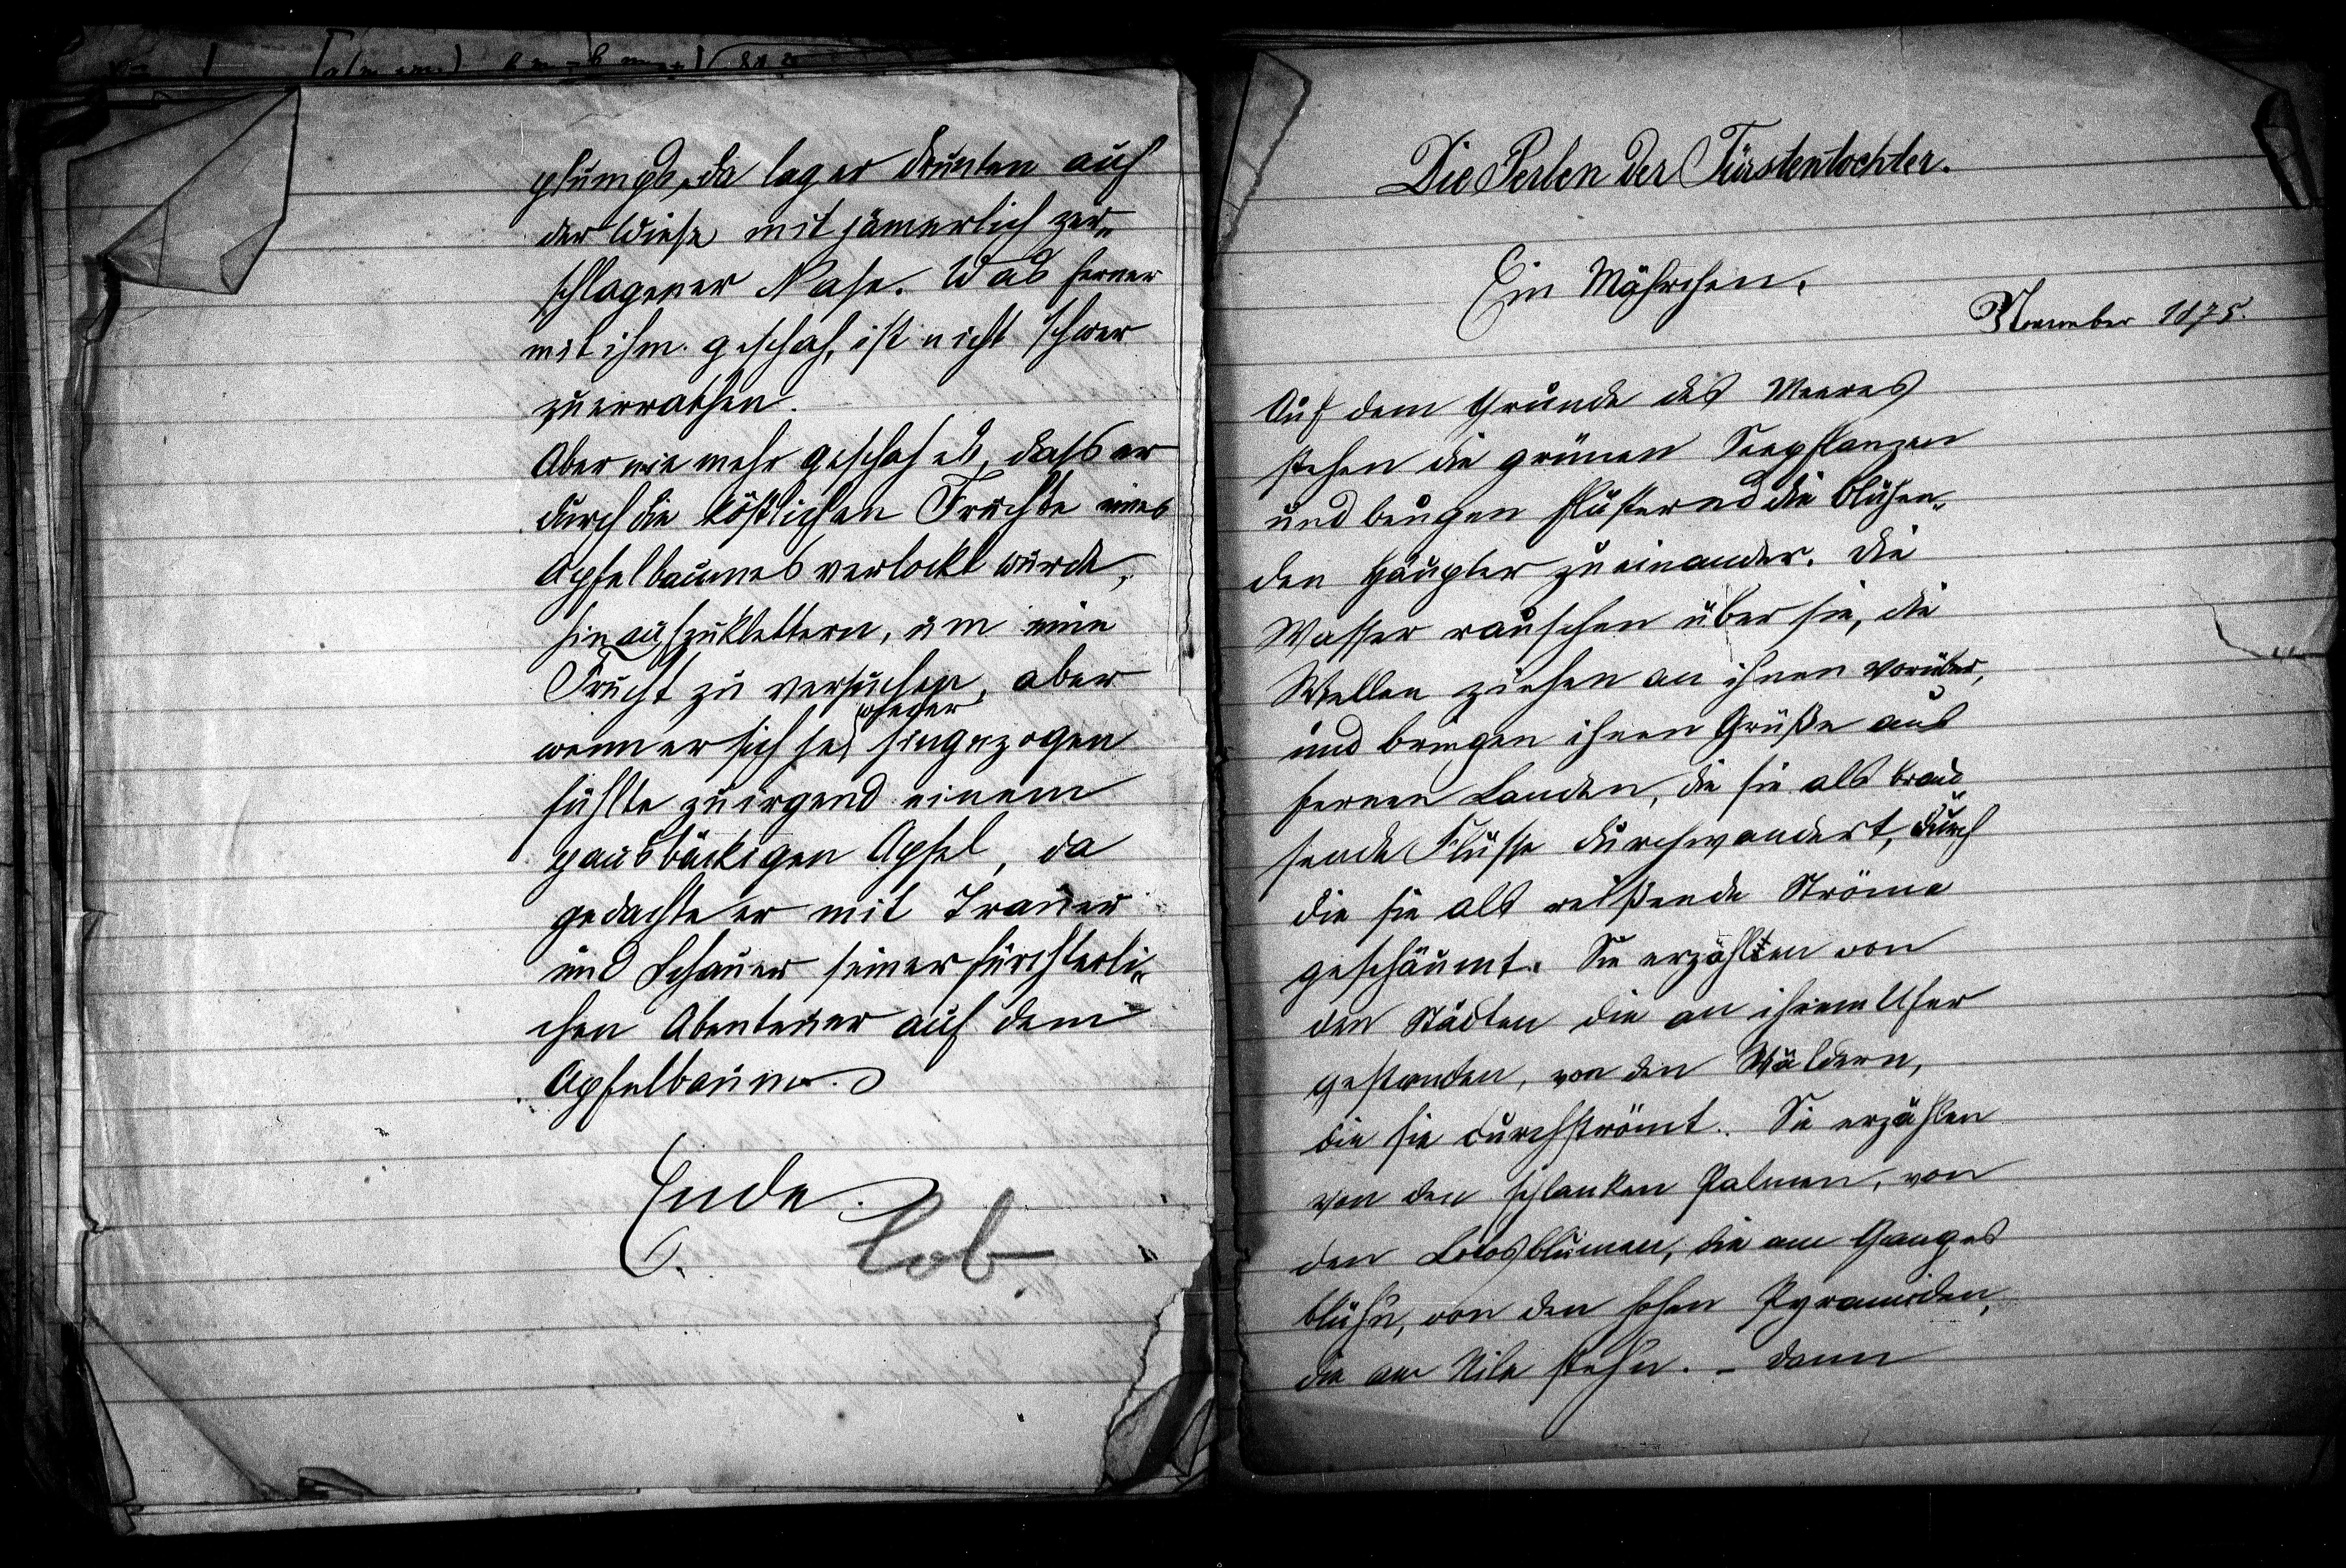 plumps, da lag er drunten auf
der Wiese mit jämerlich zer„
schlagener Nase. Was ferner
mit ihm geschah, ist nicht schwer
zu errathen.
Aber nie mehr geschah es, dass er
durch die köstlichen Früchte eines
Apfelbaumes verlockt wurde,
hinaufzuklettern, um eine
Frucht zu versuchen, aber
wenn er sich je hingezogen
fühlte zu irgend einem
pausbäckigen Apfel, da
gedachte er mit Trauer
und Schauer seiner fürchterli„
chen Abenteuer auf dem
Apfelbaume.
Ende.
Lob
Die Perlen der Fürstentochter.
Ein Mährchen.
November 1875.
Auf dem Grunde des Meeres
stehen die grünen Seepflanzen
und beugen flüsternd die blühen„
den Häupter zu einander. Die
Wasser rauschen über sie, die
Wellen ziehen an ihnen vorüber,
und bringen ihnen Grüße aus
fernen Landen, die sie als brau„
sende Flüsse durchwandert, durch
die sie als reißende Ströme
geschäumt. Sie erzählten von
den Städten die an ihrem Ufer
gestanden, von den Wäldern,
die sie durchströmt. Sie erzählen
von den schlanken Palmen, von
den Lotosblumen, die am Ganges
blüh'n, von den hohen Pyramiden,
die am Nile steh'n. – Dann